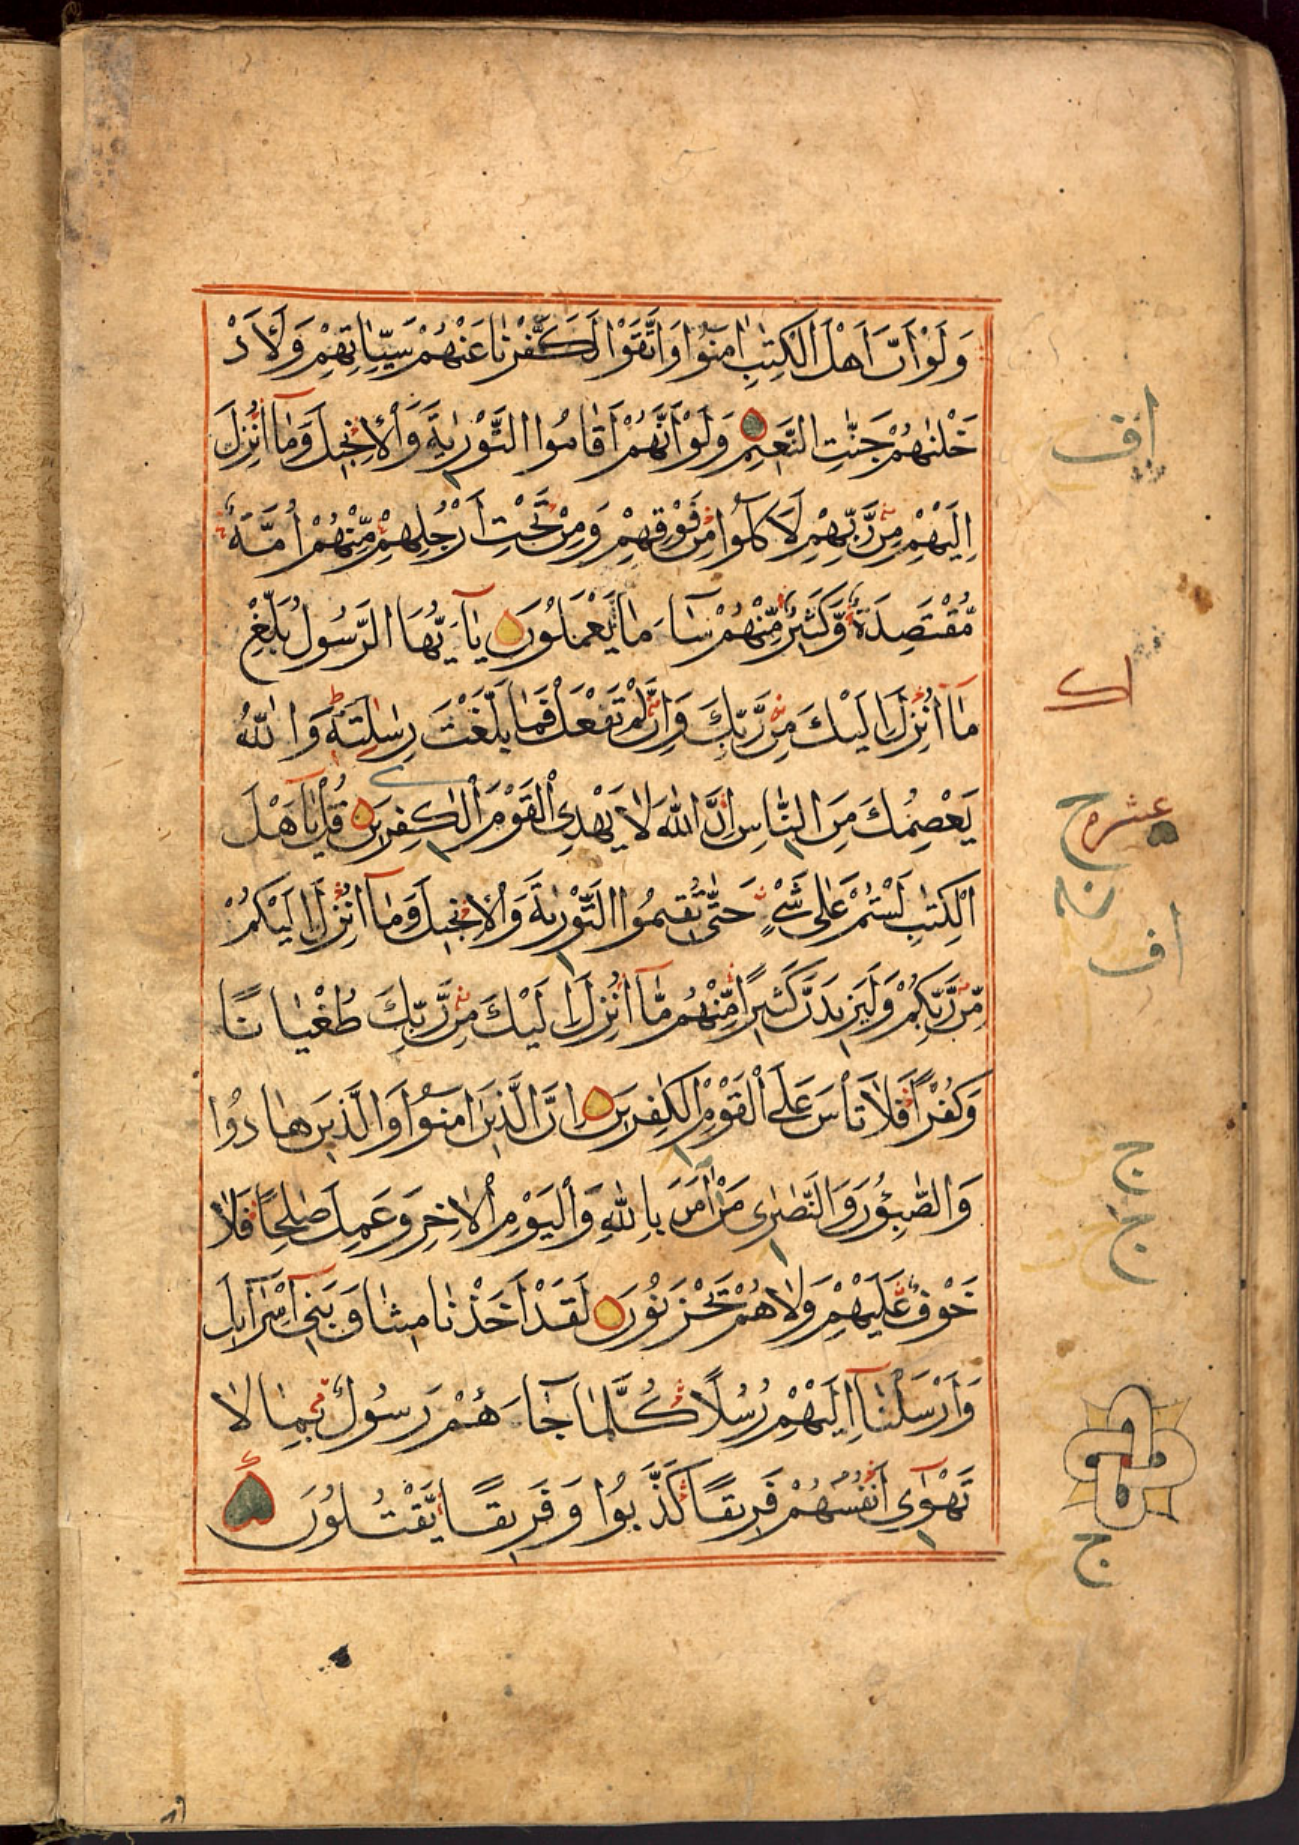 وَلَوْ اَنَّ اَهْلَ الْكِتٰبِ اٰمَنُوْا وَاتَّقَوْا لَكَفَّرْنٰا عَنْهُمْ سَيِّاٰتِهِمْ وَلَاَدْ
خَلْنٰهُمْ جَنّٰتِ النَّعٖيمِ وَلَوْ اَنَّهُمْ اَقٰامُوا التَّوْرٰيةَ وَالْاِنْجٖيلَ وَمٰٓا اُنْزِلَ
اِلَيْهِمْ مِنْ رَّبِّهِمْ لَاَكَلُوْا مِنْ فَوْقِهِمْ وَمِنْ تَحْتِ اَرْجُلِهِمْ مِّنْهُمْ اُمَّةٌ
مُّقْتَصِدَةٌ وَّكَثٖيرٌ مِّنْهُمْ سٰٓاءَ مٰا يَعْمَلُوْنَ يٰٓا اَيُّهَا الرَّسُوْلُ بَلِّغْ
مٰٓا اُنْزِلَ اِلَيْكَ مِنْ رَّبِّكَ وَاِنْ لَّمْ تَفْعَلْ فَمٰا بَلَّغْتَ رِسٰالَتَهٗ وَاللّٰهُ
يَعْصِمُكَ مِنَ النّٰاسِ اِنَّ اللّٰهَ لٰا يَهْدِي الْقَوْمَ الْكٰفِرٖينَ قُلْ يٰٓا اَهْلَ
الْكِتٰبِ لَسْتُمْ عَلٰى شَيْءٍ حَتّٰى تُقٖيمُوا التَّوْرٰيةَ وَالْاِنْجٖيلَ وَمٰٓا اُنْزِلَ اِلَيْكُمْ
مِّنْ رَّبِّكُمْ وَلَيَزٖيدَنَّ كَثٖيرًا مِّنْهُمْ مّٰٓا اُنْزِلَ اِلَيْكَ مِنْ رَّبِّكَ طُغْيٰانًا
وَكُفْرًا فَلٰا تَاْسَ عَلَى الْقَوْمِ الْكٰفِرٖينَ اِنَّ الَّذٖينَ اٰمَنُوْا وَالَّذٖينَ هٰادُوْا
وَالصّٰبِـُٔوْنَ وَالنَّصٰرٰى مَنْ اٰمَنَ بِاللّٰهِ وَالْيَوْمِ الْاٰخِرِ وَعَمِلَ صٰلِحًا فَلٰا
خَوْفٌ عَلَيْهِمْ وَلٰا هُمْ يَحْزَنُوْنَ لَقَدْ اَخَذْنٰا مٖيثٰاقَ بَنٖٓي اِسْرٰٓاءٖيلَ
وَاَرْسَلْنٰٓا اِلَيْهِمْ رُسُلًا كُلَّمٰا جٰٓاءَهُمْ رَسُوْلٌ بِمٰا لٰا
تَهْوٰٓى اَنْفُسُهُمْ فَرٖيقًا كَذَّبُوْا وَفَرٖيقًا يَّقْتُلُوْنَ
اف
اك
عشره
ح
اف
ج
ج
ج